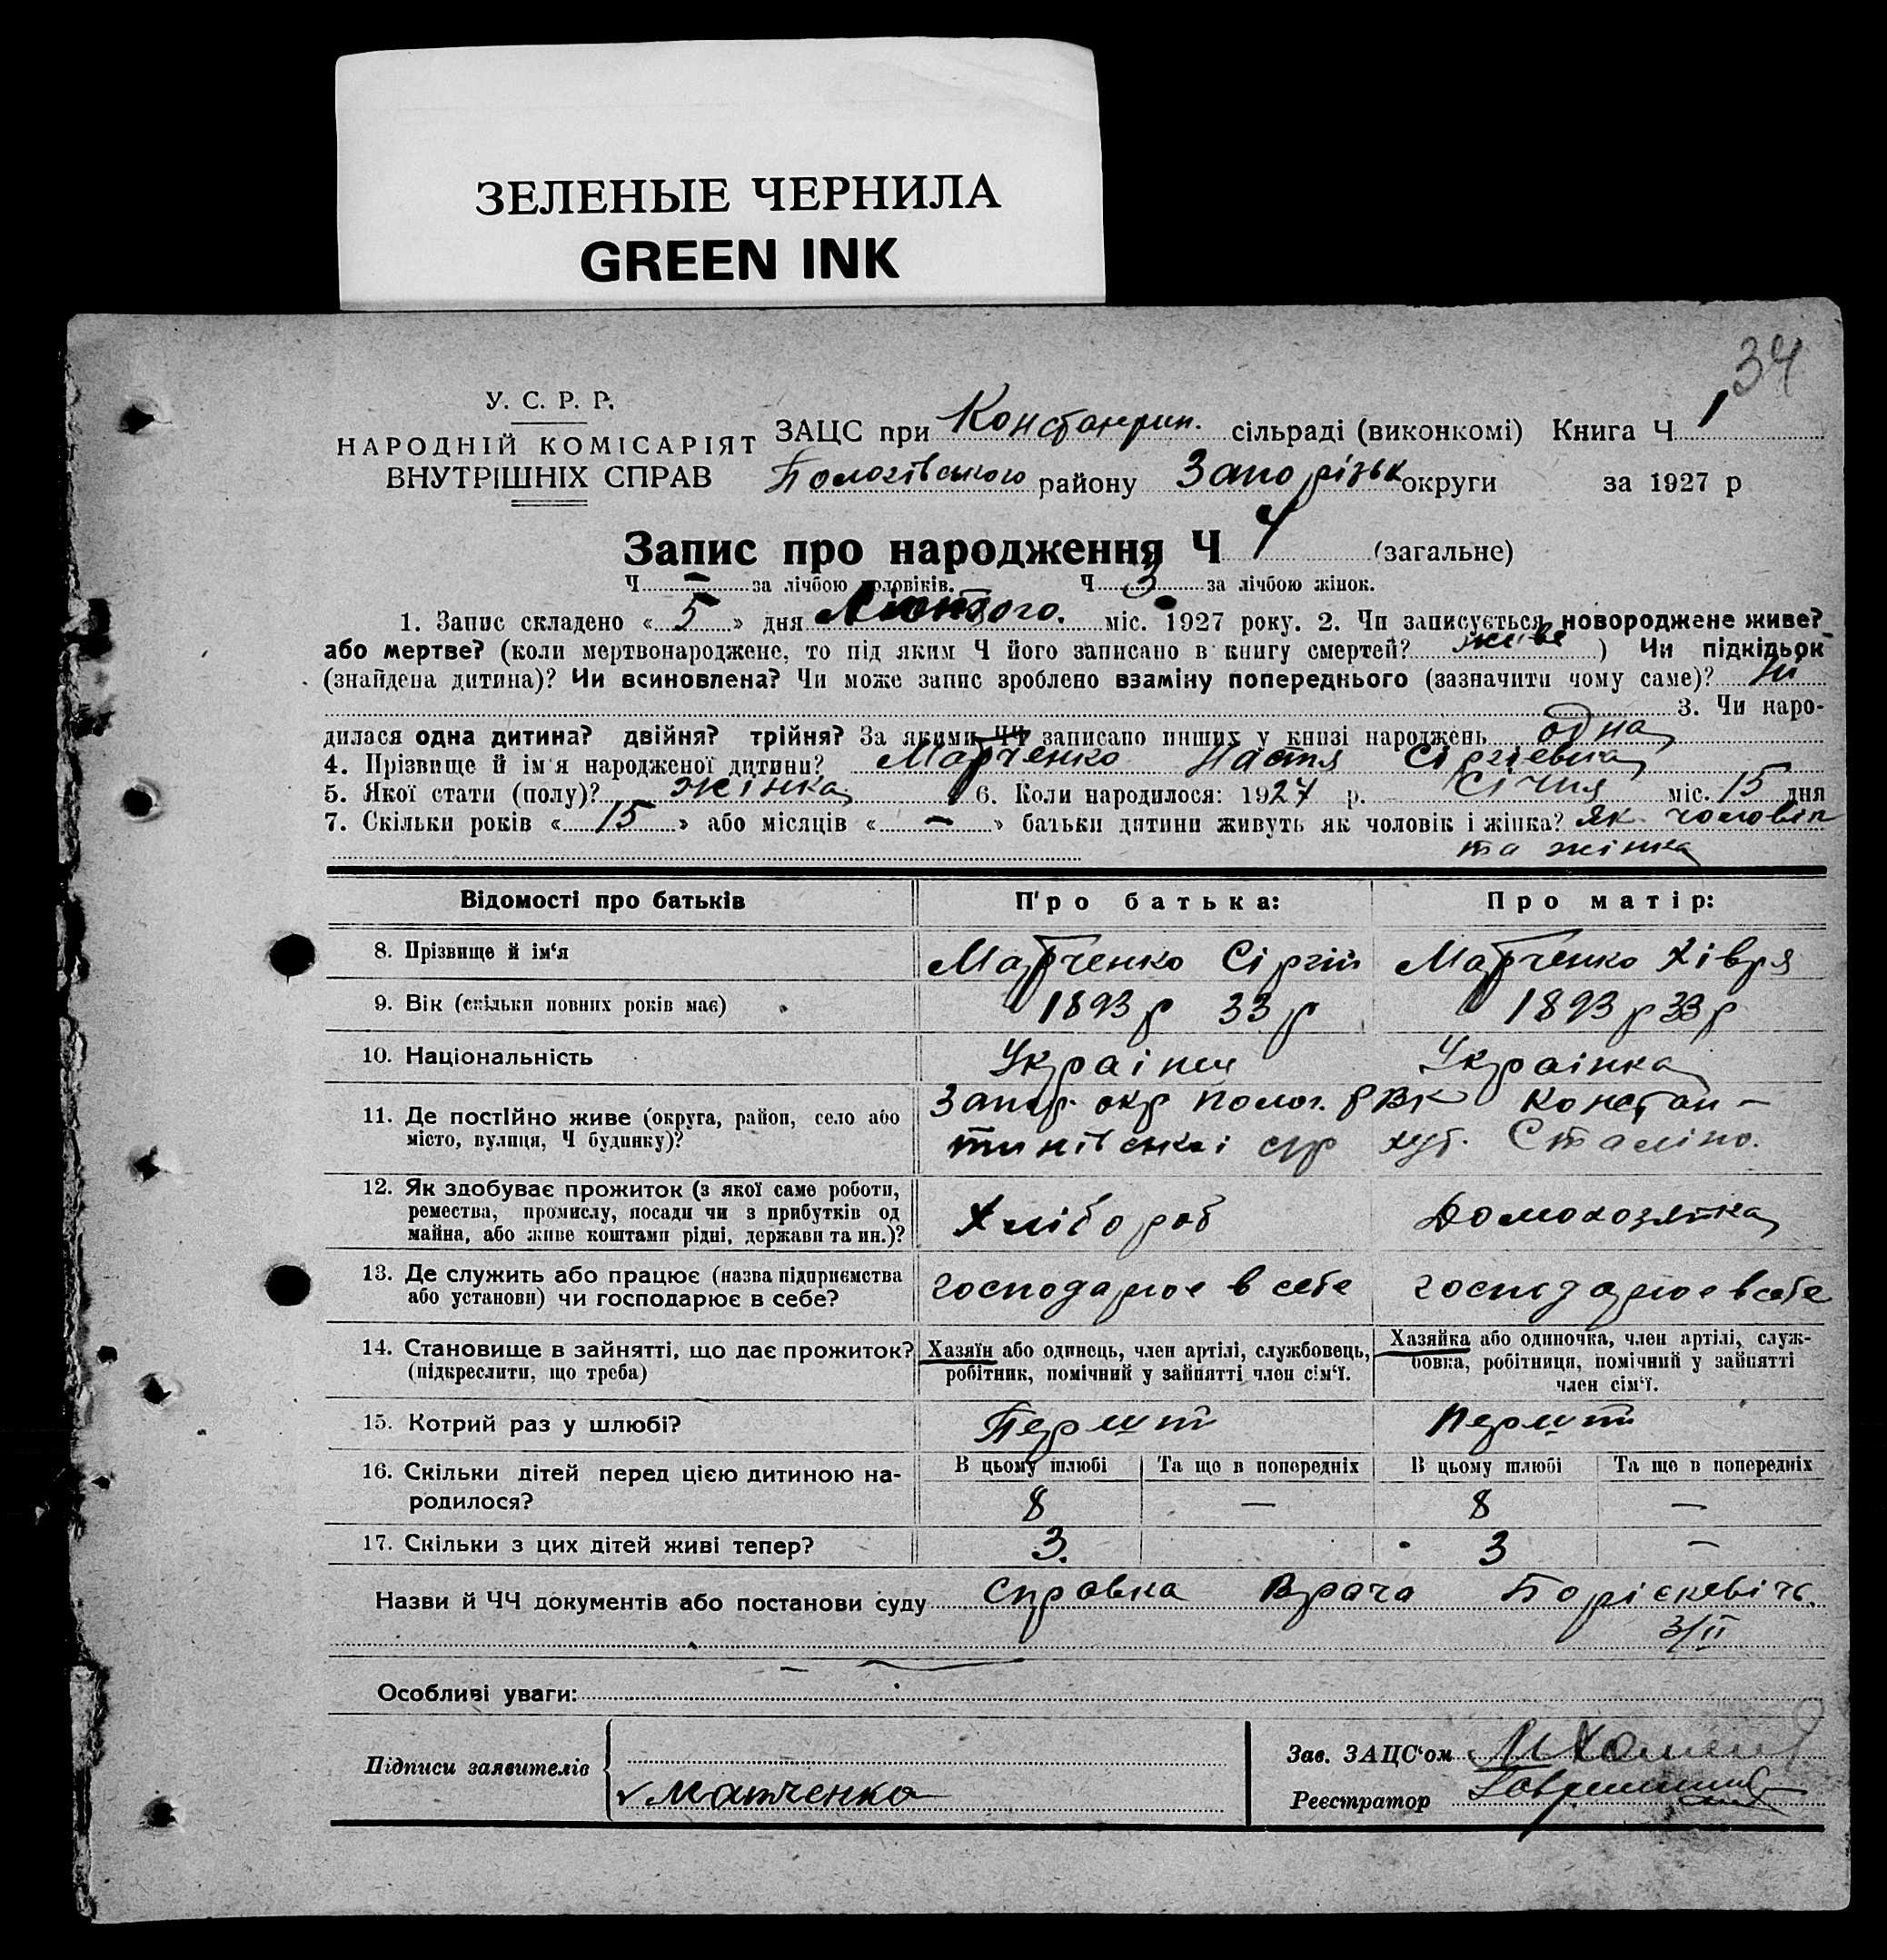 ЗЕЛЕНЫЕ ЧЕРНИЛА
GREEN INK
34
У. С. Р. Р.
НАРОДНІЙ КОМІСАРІЯТ
ВНУТРІШНІХ СПРАВ
ЗАЦС при Константин. сільраді (виконкомі) Книга Ч 1
Пологівського району Запорізьк округи за 1927 р
Запис про народження Ч 4 (загальне)
Ч - за лічбою чоловіків. Ч 3 за лічбою жінок.
1. Запис складено « 5 » дня Лютого. міс. 1927 року. 2. Чи записується новороджене живе?
або мертве? (коли мертвонароджене, то під яким Ч його записано в книгу смертей? живе ) Чи підкідьок
(знайдена дитина)? Чи всиновлена? Чи може запис зроблено взаміну попереднього (зазначити чому саме)? ні
3. Чи наро-
дилася одна дитина? двійня? трійня? За якими ЧЧ записано инших у книзі народжень одна
4. Прізвище й ім'я народженої дитини? Марченко Настя Сіргіевна
5. Якої стати (полу)? жінка 6. Коли народилося: 1927 р. Січня міс. 15 дня
7. Скільки років « 15 » або місяців « - » батьки дитини живуть як чоловік і жінка? Як чоловік
та жінка
Відомості про батьків
Про батька:
Про матір:
8. Прізвище й ім'я
Марченко Сіргій
Марченко Хівря
9. Вік (скільки повних років має)
1893 р 33 р
1893 р 33 р
10. Національність
Украінец
Украінка
11. Де постійно живе (округа, район, село або
місто, вулиця, Ч будинку)?
Запор. окр Полог. РВК Констан-
тинівськоі с/р хут. Сталіно.
12. Як здобуває прожиток (з якої саме роботи,
ремества, промислу, посади чи з прибутків од
майна, або живе коштами рідні, держави та ин.)?
Хлібороб
Домохозяйка
13. Де служить або працює (назва підприємства
або установи) чи господарює в себе?
господарює в себе
господарює в себе
14. Становище в зайнятті, що дає прожиток?
(підкреслити, що треба)
Хазяїн або одинець, член артілі, службовець,
робітник, помічний у зайнятті член сім'ї.
Хазяйка або одиночка, член артілі, служ-
бовка, робітниця, помічний у зайнятті
член сім'ї.
15. Котрий раз у шлюбі?
Перший
Перший
16. Скільки дітей перед цією дитиною на-
родилося?
В цьому шлюбі Та ще в попередніх В цьому шлюбі Та ще в попередніх
8 — 8 —
17. Скільки з цих дітей живі тепер?
3. 3 —
Назви й ЧЧ документів або постанови суду Справка Врача Боріскевічь.
3/II
Особливі уваги:
Підписи заявителів
Марченко
Зав. ЗАЦС'ом
Реєстратор